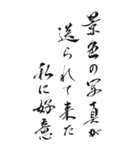 景色の写真が
送られて来た
私に好意